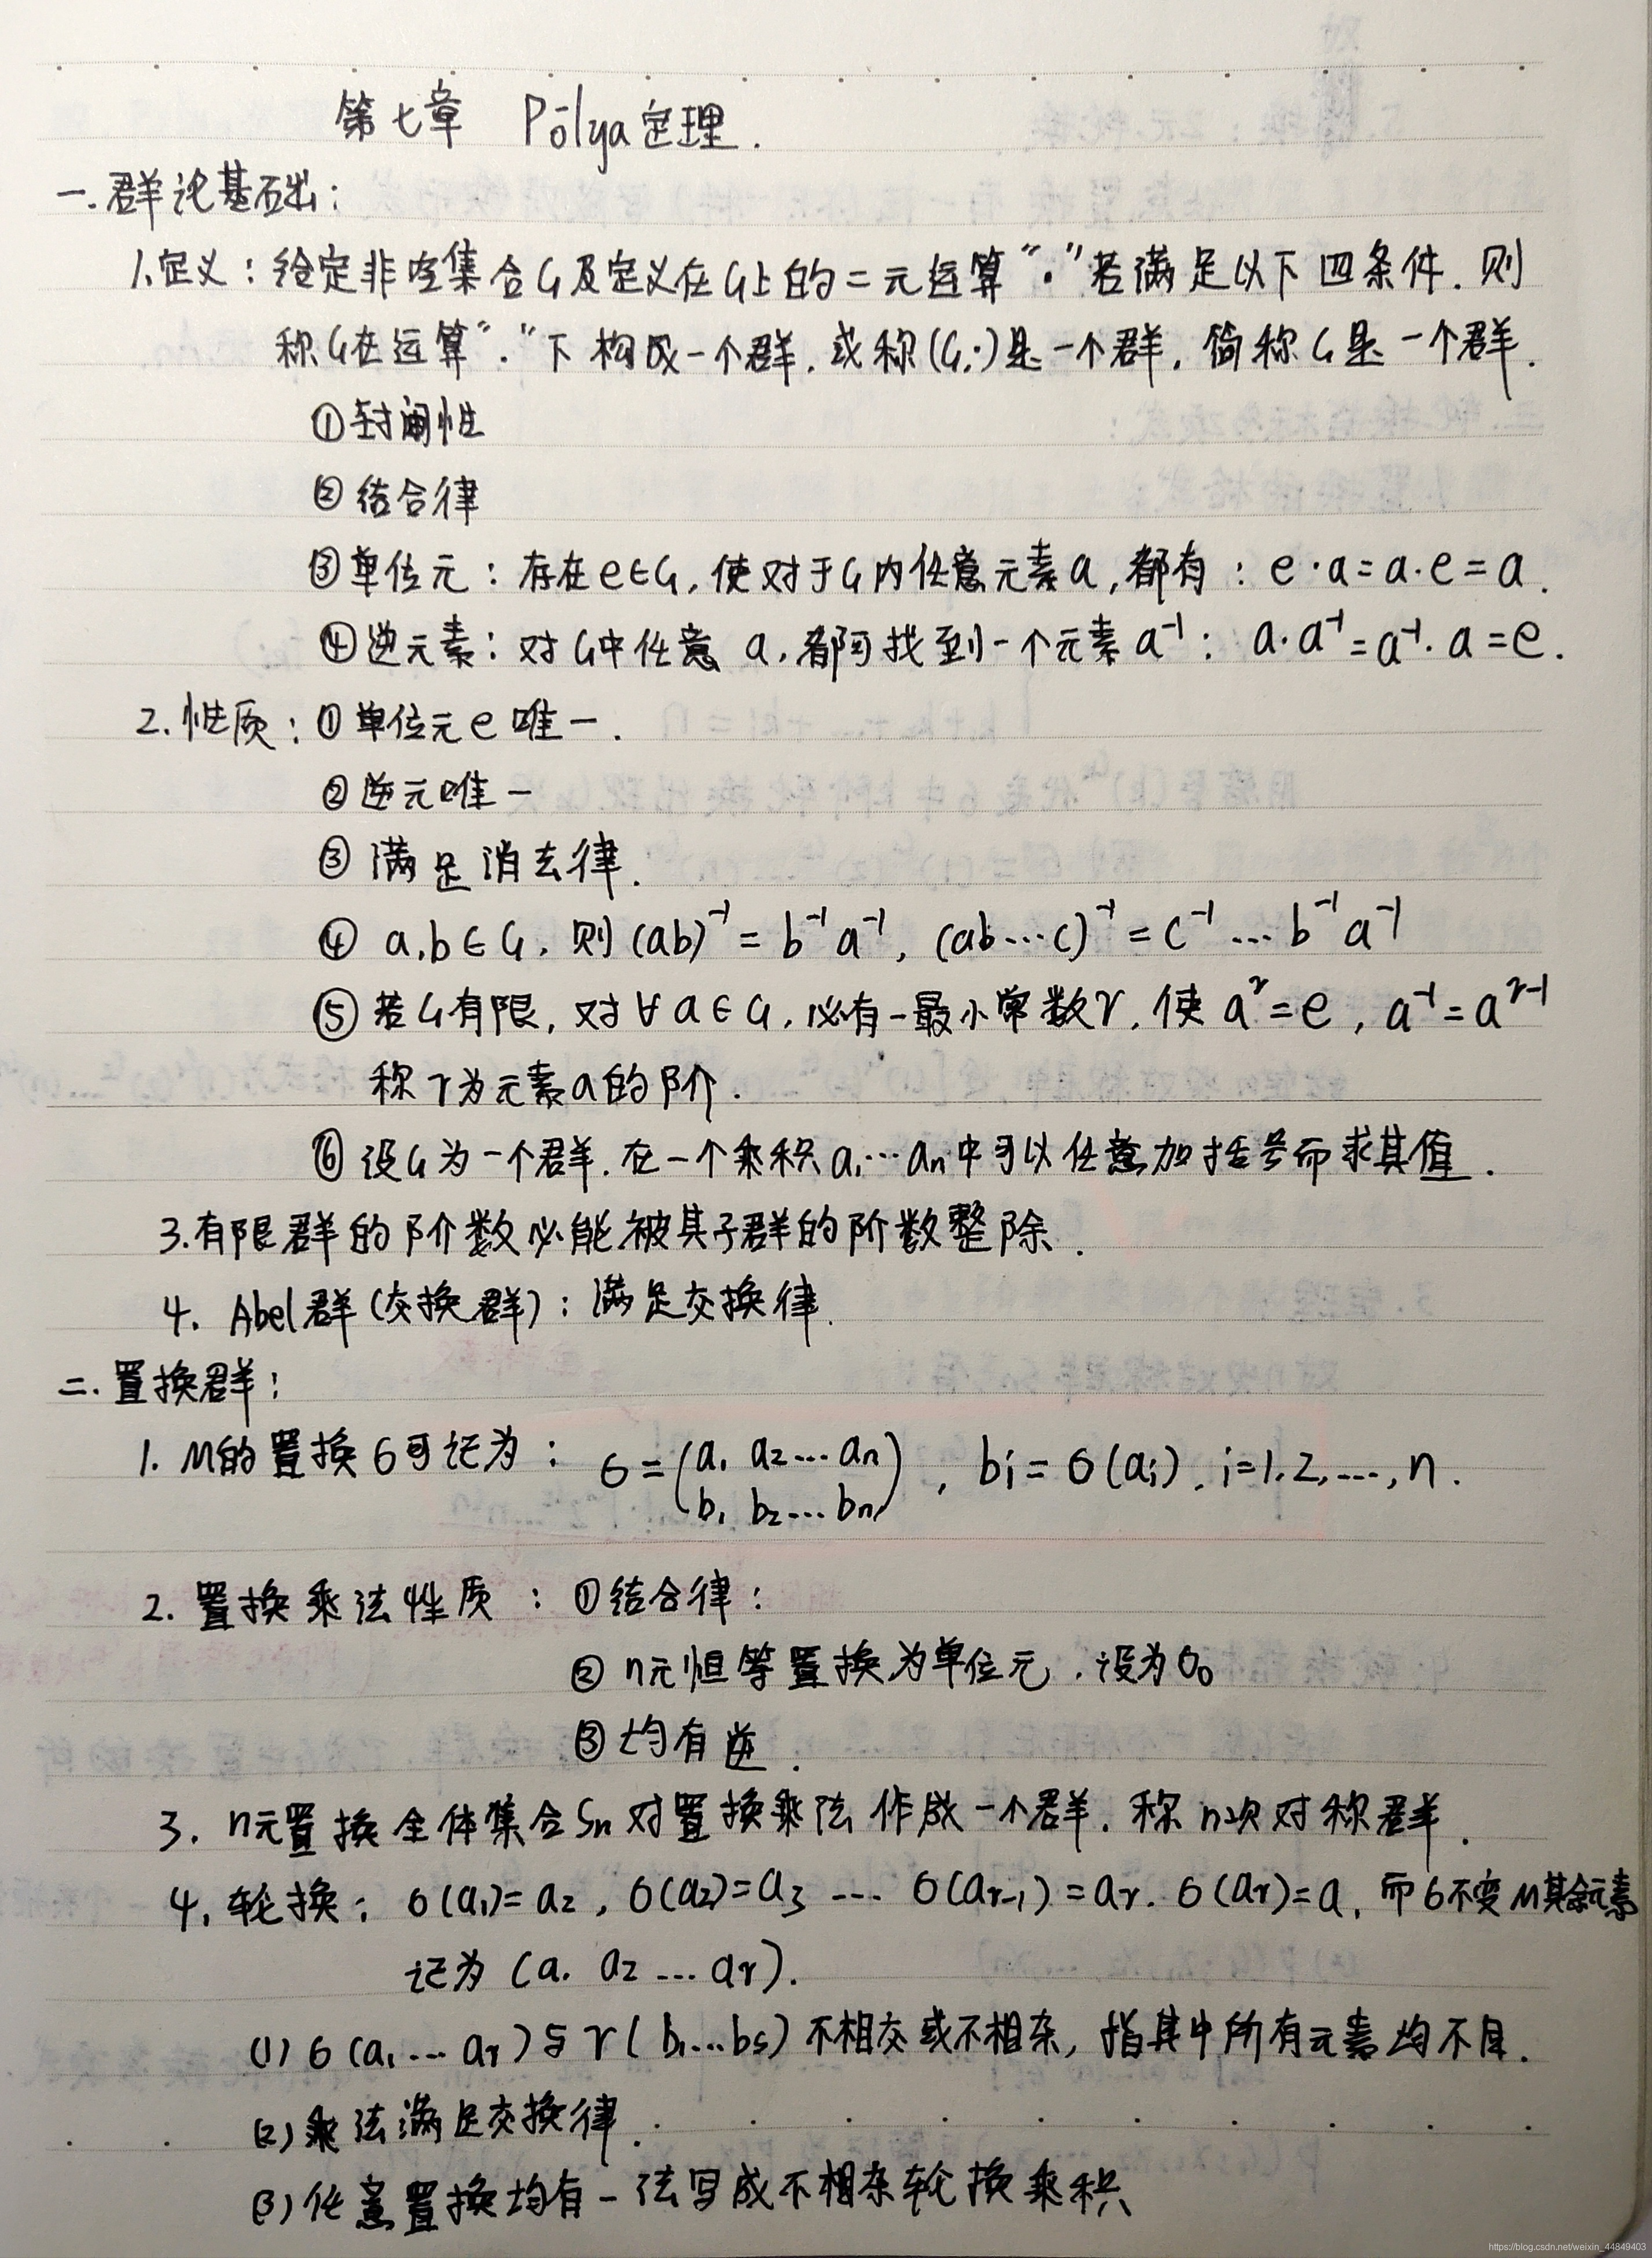 第七章 Pólya定理.
一.群论基础:
1.定义:给定非空集合G及定义在G上的二元运算“·”若满足以下四条件.则
称G在运算“·”下构成一个群,或称(G,·)是一个群,简称G是一个群.
①封闭性
②结合律
③单位元:存在e∈G,使对于G内任意元素a,都有:e·a=a·e=a.
④逆元素:对G中任意a,都可找到一个元素a⁻¹: a·a⁻¹=a⁻¹·a=e.
2.性质:①单位元e唯一.
②逆元唯一
③满足消去律.
④ a,b∈G,则(ab)⁻¹=b⁻¹a⁻¹, (ab…c)⁻¹=c⁻¹…b⁻¹a⁻¹
⑤若G有限,对∀a∈G,必有一最小常数r,使aʳ=e, a⁻¹=aʳ⁻¹
称r为元素a的阶.
⑥设G为一个群.在一个乘积a₁…aₙ中可以任意加括号而求其值.
3.有限群的阶数必能被其子群的阶数整除.
4. Abel群(交换群):满足交换律.
二.置换群:
1. M的置换σ可记为: σ=(a₁ a₂…aₙ), bᵢ=σ(aᵢ), i=1,2,…,n.
(b₁ b₂…bₙ)
2.置换乘法性质:①结合律:
②n元恒等置换为单位元,设为σ₀
③均有逆.
3. n元置换全体集合Sₙ对置换乘法作成一个群.称n次对称群.
4.轮换:σ(a₁)=a₂, σ(a₂)=a₃ … σ(aᵣ₋₁)=aᵣ. σ(aᵣ)=a₁ 而σ不变M其余元素
记为(a₁ a₂ … aᵣ).
(1) σ(a₁…aᵣ)与τ(b₁…bₛ)不相交或不相杂,指其中所有元素均不同.
(2)乘法满足交换律.
(3)任意置换均有一法写成不相杂轮换乘积
https://blog.csdn.net/weixin_44849403